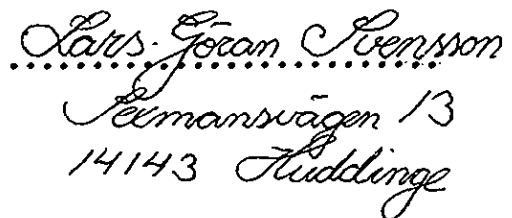 Lars-Göran Svensson
Sexmansvägen 13
14143 Huddinge